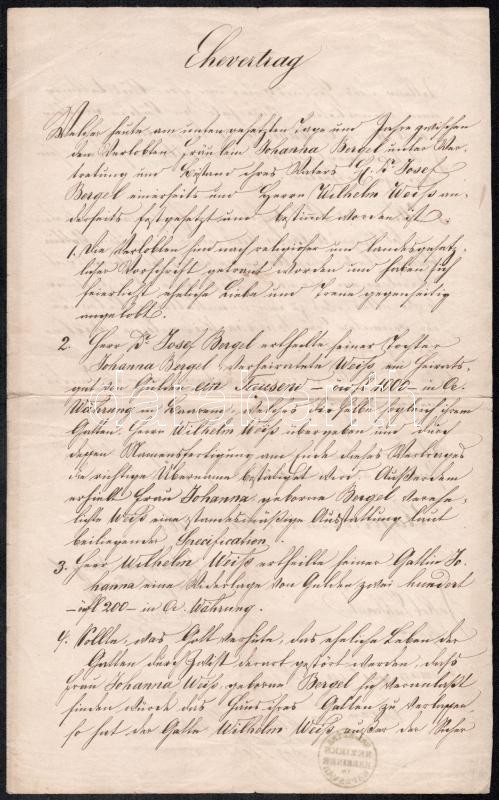 Ehevertrag
Welcher heute am unten gesetzten Tage und Jahre zwischen
den Verlobten Fräulein Johanna Bergel unter Ver-
tretung und Beistand ihres Vaters H. Dr Josef
Bergel einerseits und Herrn Wilhelm Weiß an-
derseits festgesetzt und bestimmt worden ist.
1. Die Verlobten sind nach religiöser und landesgesetz-
licher Vorschrift getraut worden und haben sich
feierlichst eheliche Liebe und Treue gegenseitig
angelobt.
2. Herr Dr Josef Bergel ertheilte seiner Tochter
Johanna Bergel verheiratete Weiß ein Heirats-
gut von Gulden ein Tausend – 1000 – in Ö.
Währung in Baarem, welches derselbe sogleich ihrem
Gatten Herrn Wilhelm Weiß übergeben und durch
dessen Namensfertigung am Ende dieses Vertrages
die richtige Übernahme bestätiget wird. Außerdem
erhielt Frau Johanna geborne Bergel verehe-
lichte Weiß eine standesmäßige Ausstattung laut
beiliegender Specification.
3. Herr Wilhelm Weiß ertheilte seiner Gattin Jo-
hanna eine Widerlage von Gulden zwei hundert
– 200 – in Ö. Währung.
4. Sollte, was Gott verhüte, das eheliche Leben der
Gatten durch Zwist derart gestört werden, daß
Frau Johanna Weiß geborne Bergel sich veranlaßt
finden würde das Haus ihres Gatten zu verlassen
so hat der Gatte Wilhelm Weiß außer der Sicher